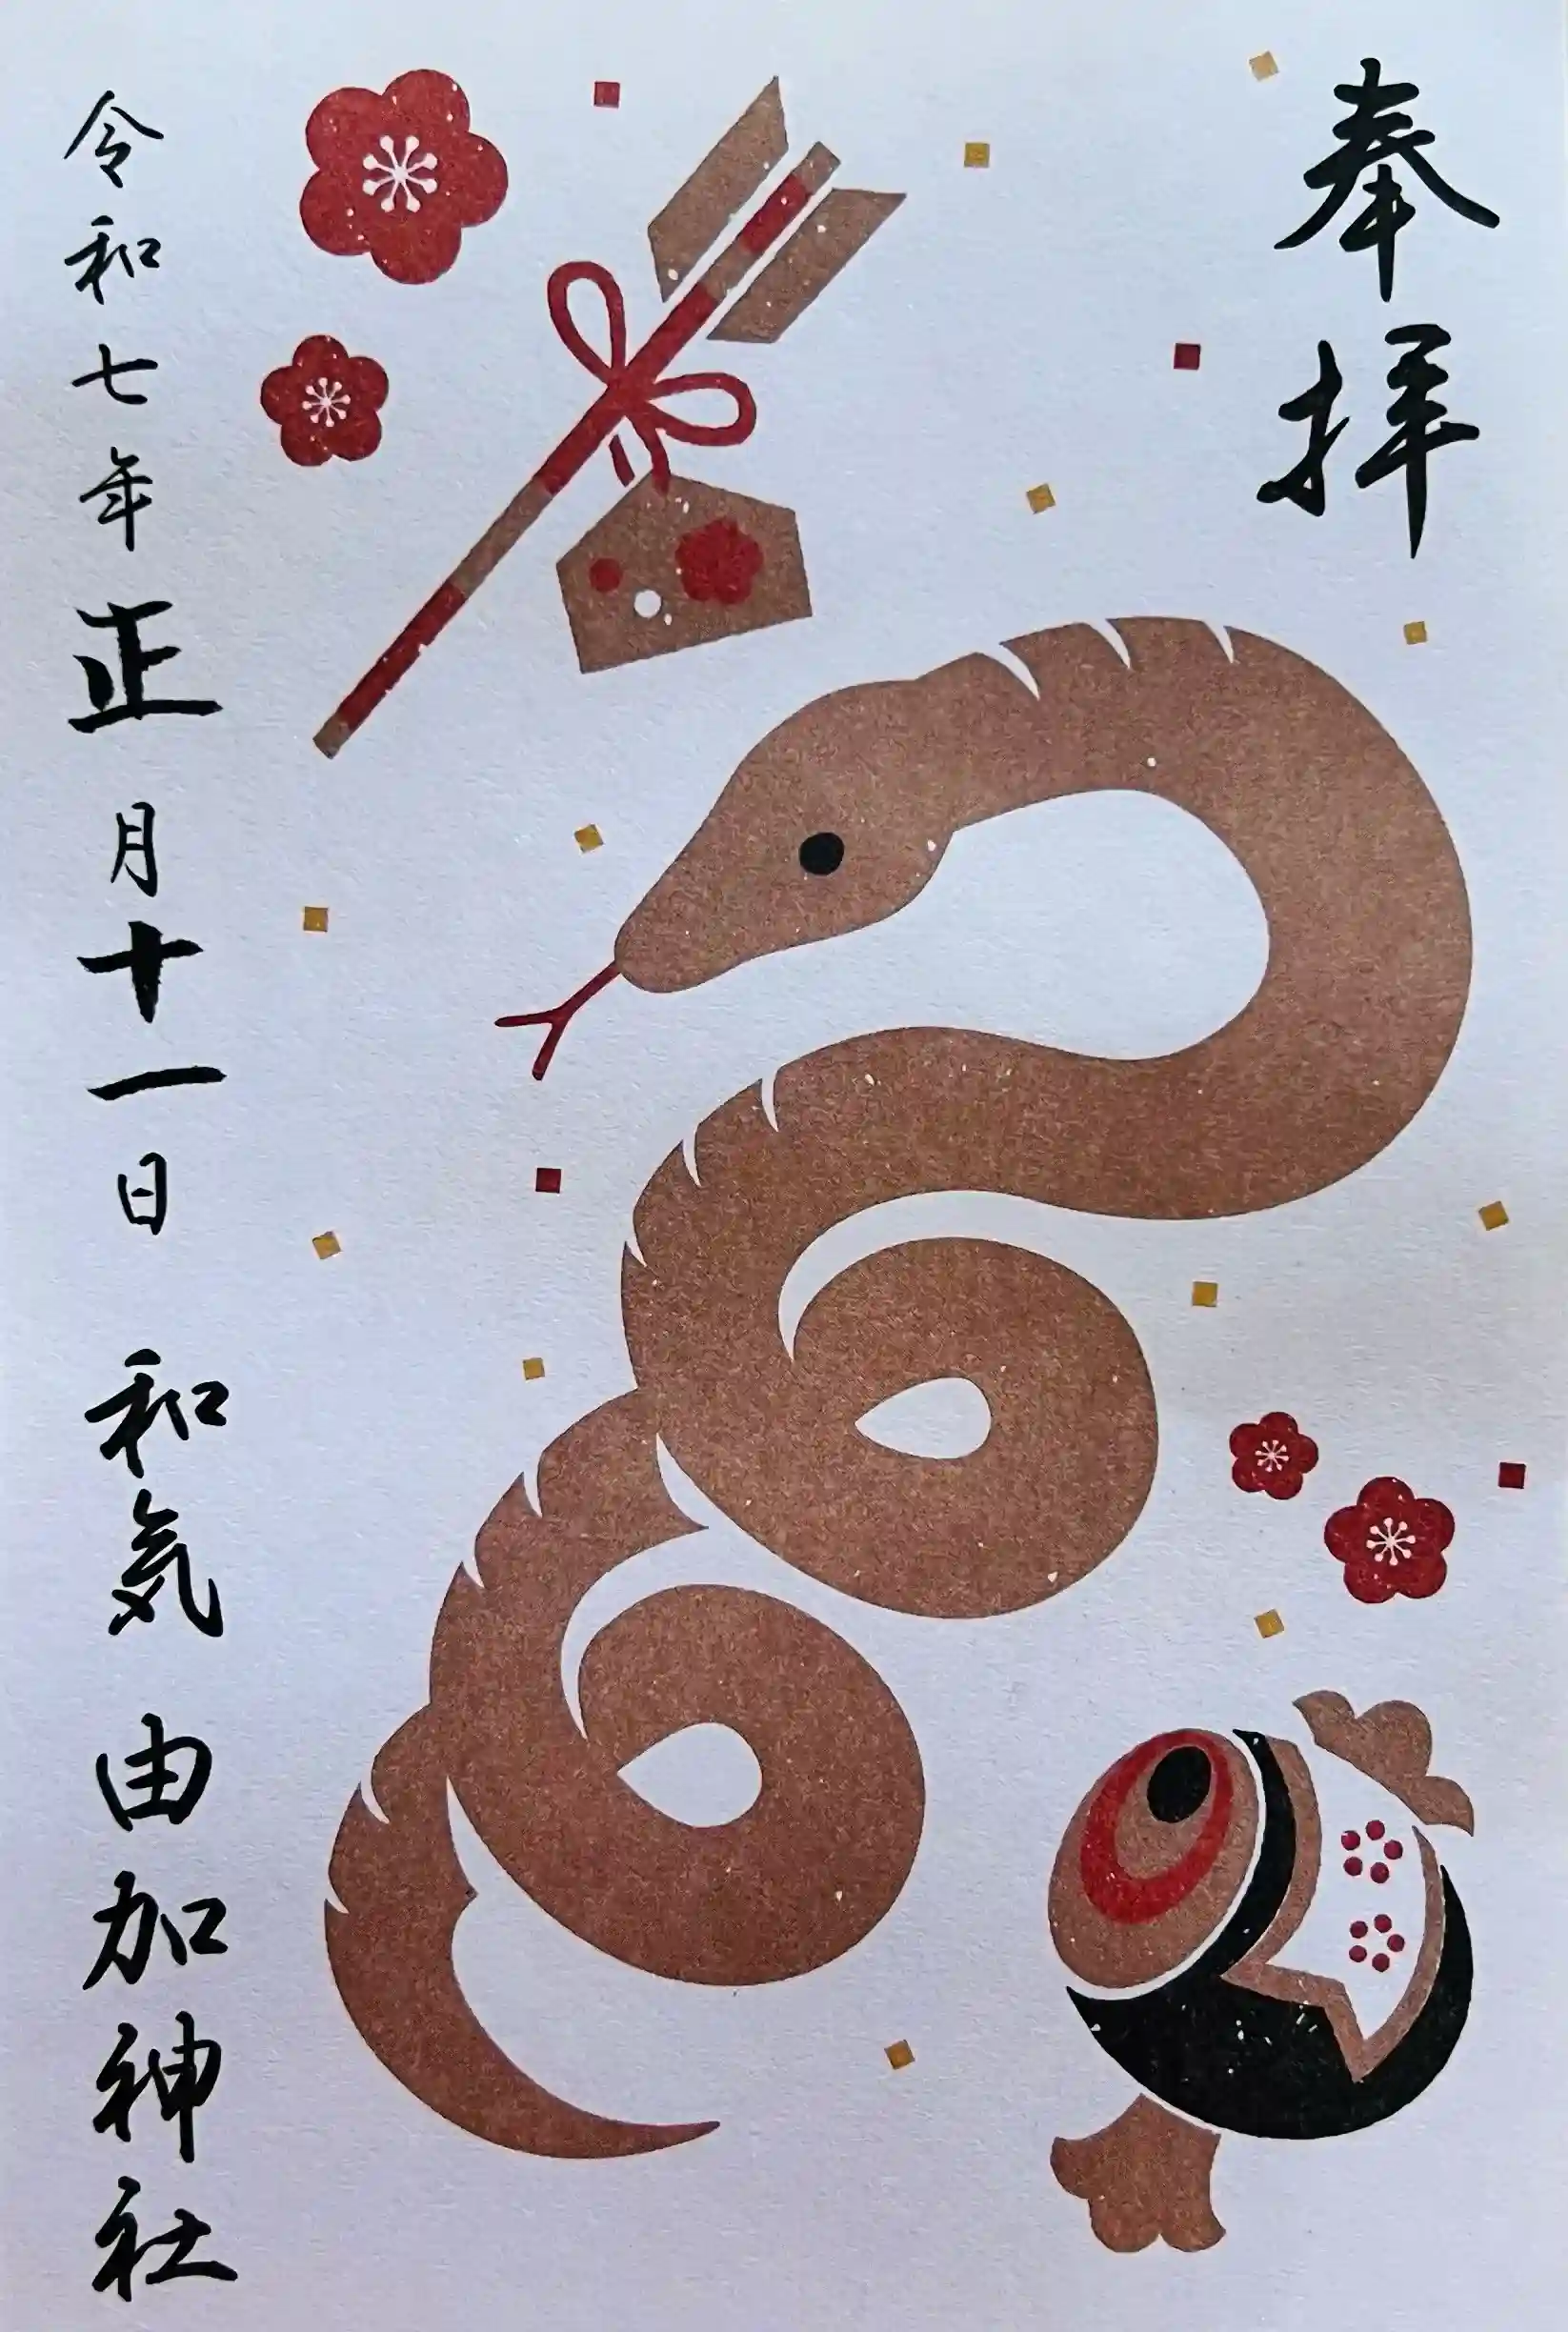 奉拝
令和七年正月十一日 和気 由加神社